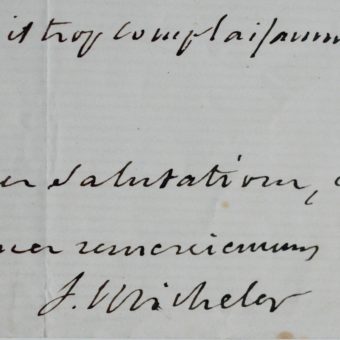 it trop complaisamm
es salutations,
mes remerciemens
J. Michelet